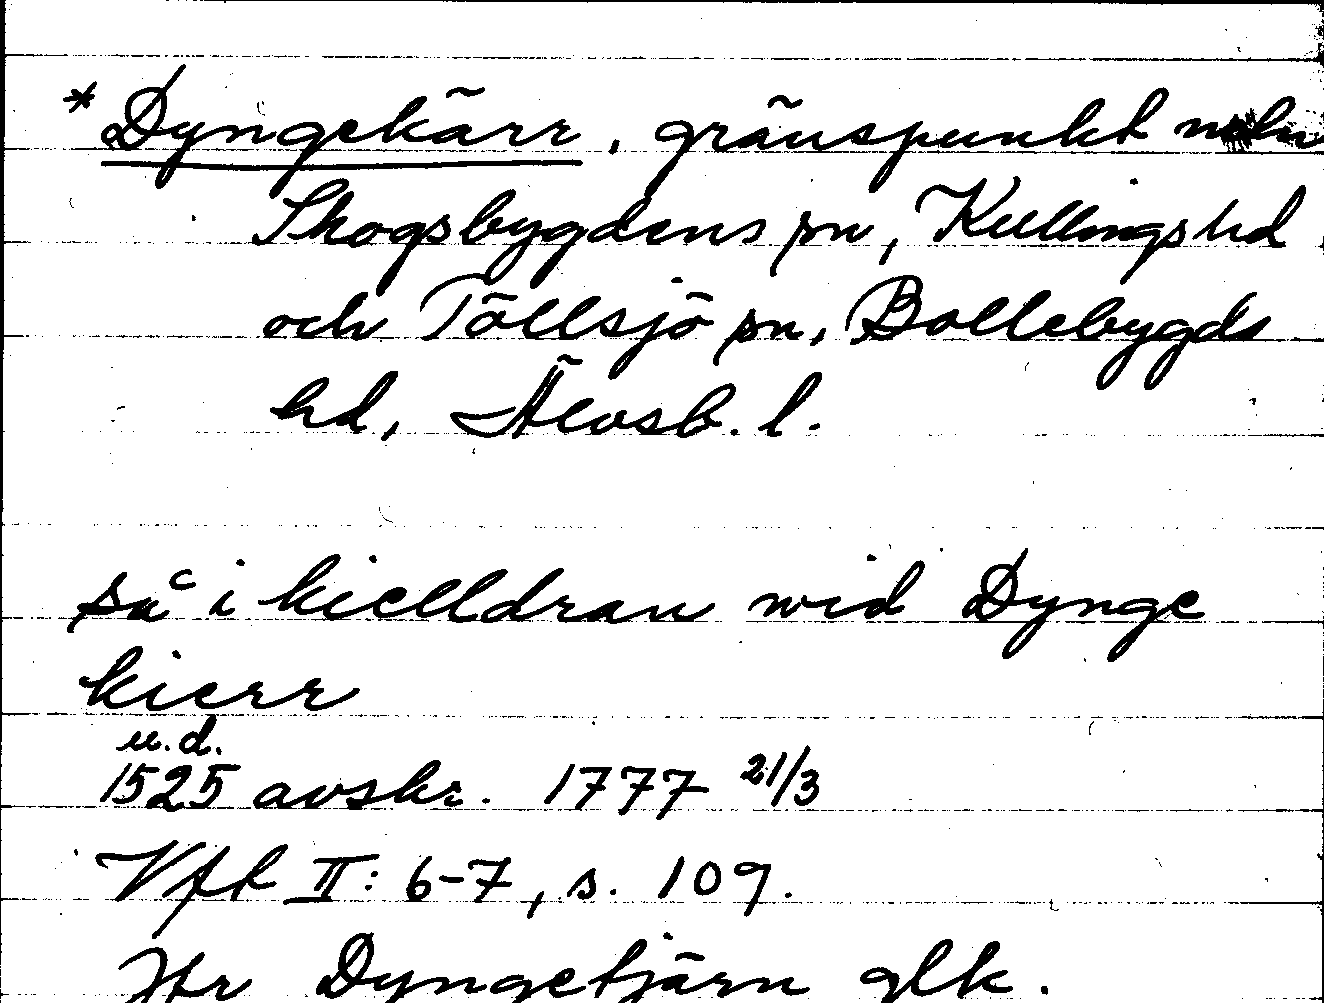 *Dyngekärr, gränspunkt
Skogsbygdens sn, Kullings hd
och Töllsjö sn, Bollebygds
hd, Älvsb. l.
så i kielldran wid Dynge
kierr
u.d.
1525 avskr. 1777 21/3
Vft II: 6-7, s. 109.
Jfr Dyngetjärn glk.